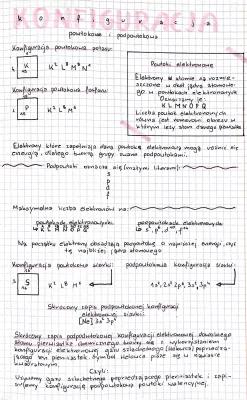 KONFIGURACJA
konfiguracja
powłokowe i podpowłokowe
Konfiguracja powłokowa potasu:
K
K² L⁸ M⁸ N¹
Konfiguracja powłokowa fosforu:
P
K² L⁸ M⁵
Powłoki elektronowe
Elektrony w atomie są rozmieszczone
w powłokach elektronowych
Oznaczamy je:
K L M N O P Q
Liczba powłok elektronowych
równa jest numerowi okresu w
którym leży atom danego pierwiastka
Elektrony które zapełniają daną powłokę elektronową mogą różnić się
energią, dlatego tworzą grupy zwane podpowłokami.
Podpowłoki oznacza się (małymi literami):
s
p
d
f
Maksymalna liczba elektronów na:
powłokach elektronowych
podpowłokach elektronowych
s², p⁶, d¹⁰, f¹⁴
Na początku elektrony obsadzają podpowłokę o najniższej energii, czyli
tę najbliżej jądra atomowego
Konfiguracja powłokowa siarki:
podpowłokowa konfiguracja siarki:
S
K² L⁸ M⁶
1s² 2s² 2p⁶ 3s² 3p⁴
Skrócony zapis podpowłokowej konfiguracji
elektronowej siarki:
[Ne] 3s² 3p⁴
Skrócony zapis podpowłokowej konfiguracji elektronowej dowolnego
atomu pierwiastka chemicznego tworzy się z wykorzystaniem
konfiguracji elektronowej gazu szlachetnego (helowca) poprzedzającego
ten pierwiastek. Symbol helowca pisze się w nawiasie
kwadratowym
Czyli:
Wpiszmy gaz szlachetny poprzedzający pierwiastek i zapiszmy
konfigurację podpowłokową powłoki walencyjnej.